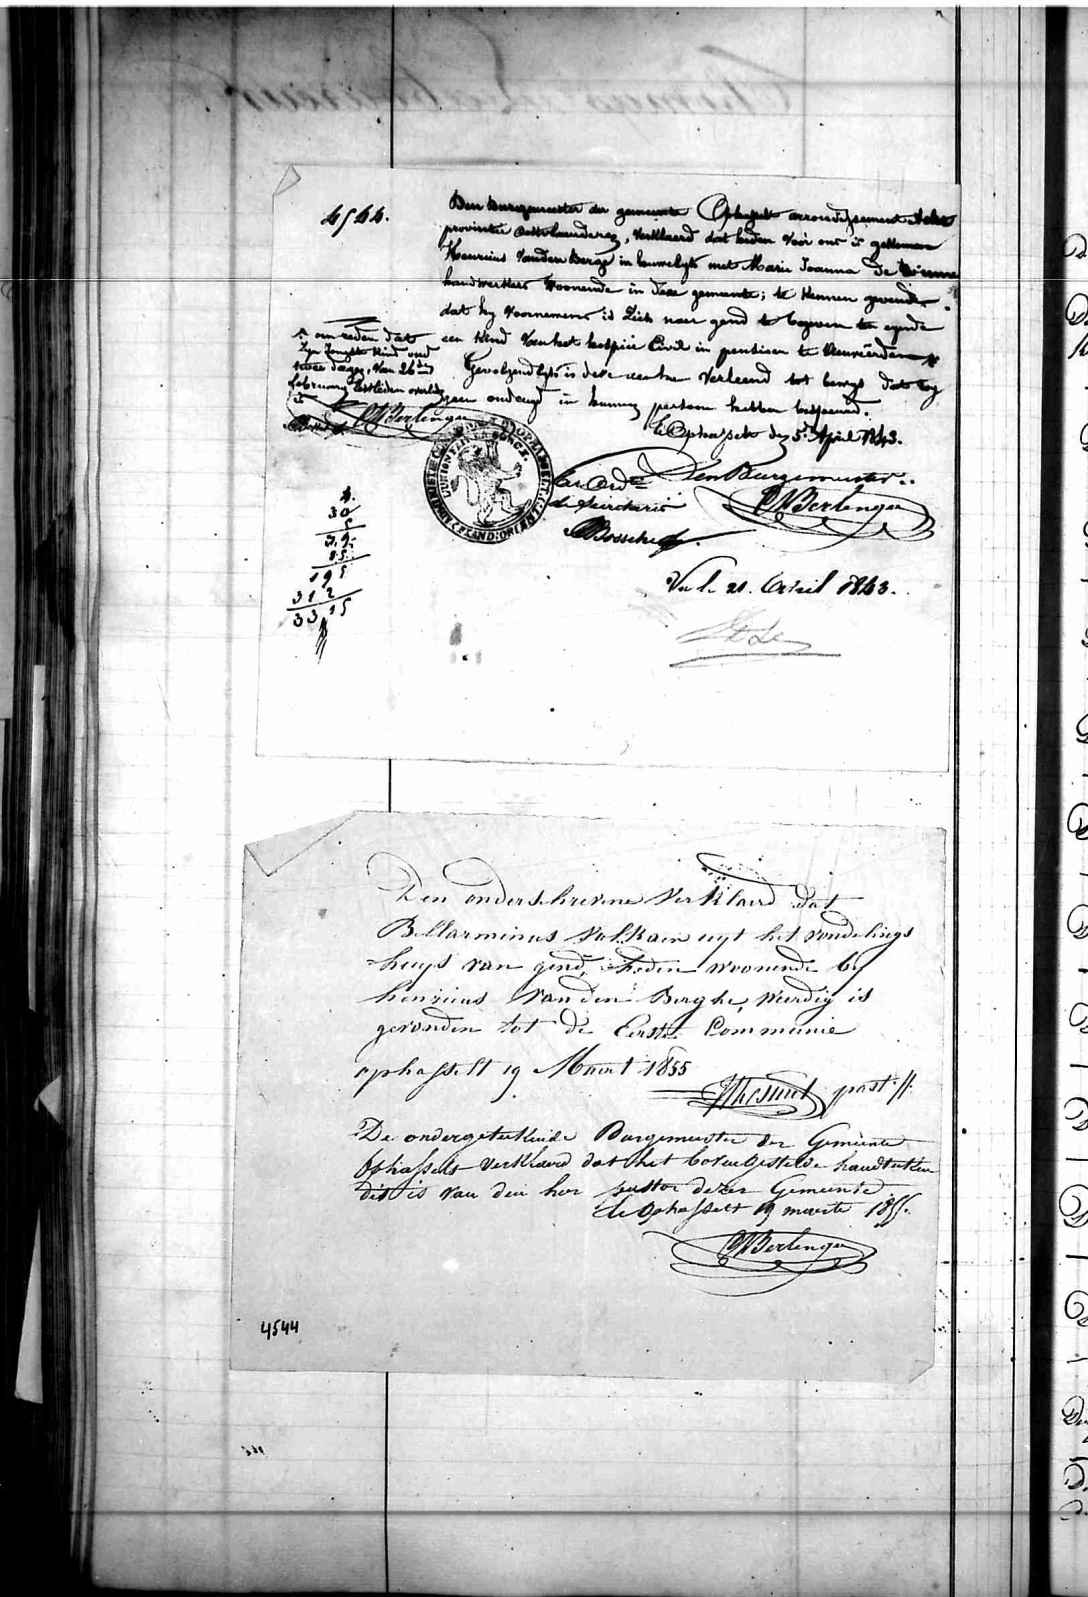 4544.
Den Burgemeester der gemeente Ophasselt arrondissement Aelst
provintie Oostvlaenderen, verklaerd dat heden voor ons is gekomen
Henricus Vanden Berge in houwelyk met Marie Joanna De
handwerkers woonende in deze gemeente; te kennen gevende
dat hy voornemens is zich naer gend te begeven ten eynde
een kind van het hospice Civil in pensioen te aenveirden
Gevolgendlyk is deze aen hem verleend tot bewys dat wy
geen ondeugd in hunnen persoon hebben bespeurd.
te Ophasselt den 5 April 1843.
om reden dat
zyn jongste kind oud
twee dagen, van 26
february lestleden overleden
is
DVBerlengee
Den Burgemeester..
DVBerlengee
Par Ord
de Secretaris
Bossche
4.
30
5
39.
85.
195
312
33,15
Vu le 21. Avril 1843.
Den onderschrevene verklaerd dat
Bellarminus Vulkaen uyt het vondelings
huys van gend, heden woonende by
henricus Vanden Berghe, weerdig is
gevonden tot de Eerste Communie
ophasselt 19 Maert 1855
past.
De ondergeteekende Burgemeester der Gemeente
Ophasselt verklaerd dat het bovengestelde handteeken
dit is van den heer pastor dezer Gemeente
te Ophasselt 19 maerte 1855.
DVBerlengee
4544